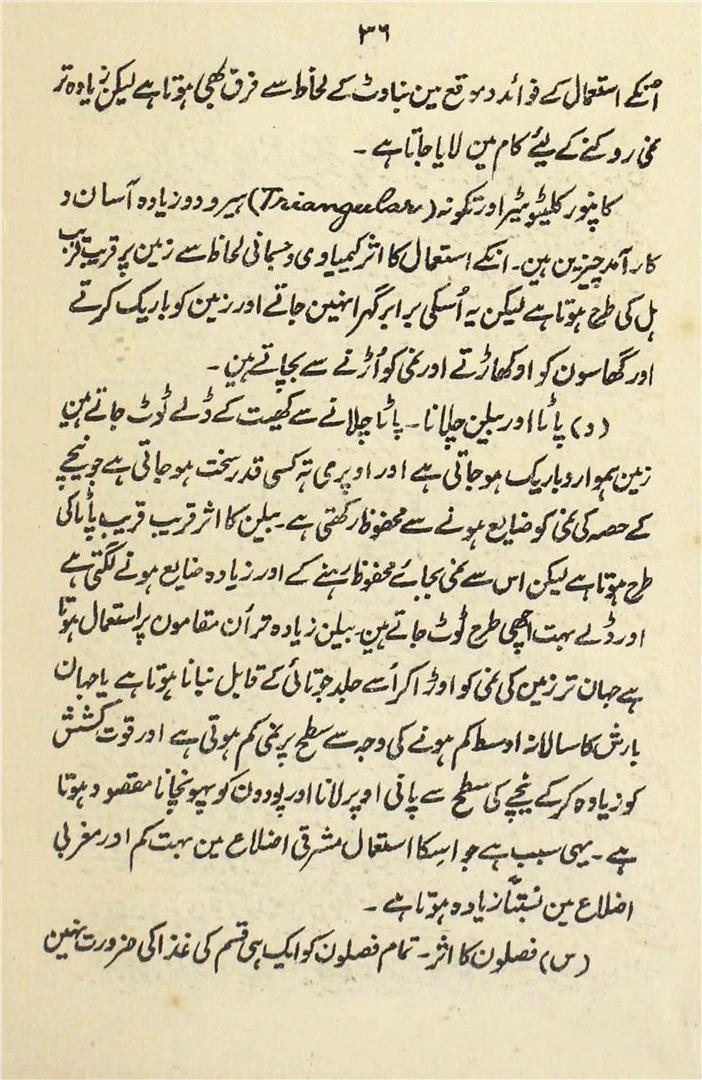 ۳۶
انکے استعمال کے فوائد و موقع مین بناوٹ کے لحاظ سے فرق بھی ہوتا ہے لیکن زیادہ تر
نمی روکنے کے لیے کام مین لایا جاتا ہے ۔
کانپور کلٹیویٹر اور تکونہ (Triangular) ہیرو دو زیادہ آسان و
کار آمد چیزین ہین ۔ انکے استعمال کا اثر کیمیاوی و جسمانی لحاظ سے زمین پر قریب قریب
ہل کی طرح ہوتا ہے لیکن یہ اُسکی برابر گہرا نہین جاتے اور زمین کو باریک کرتے
اور گھاسون کو اوکھاڑتے اور نمی کو اُڑنے سے بچاتے ہین ۔
(د) پاٹا اور بیلن چلانا ۔ پاٹا چلانے سے کھیت کے ڈلے ٹوٹ جاتے ہین
زمین ہموار و باریک ہو جاتی ہے اور اوپری تہ کسی قدر سخت ہو جاتی ہے جو نیچے
کے حصہ کی نمی کو ضایع ہونے سے محفوظ رکھتی ہے ۔ بیلن کا اثر قریب قریب پاٹا کی
طرح ہوتا ہے لیکن اس سے نمی بجائے محفوظ رہنے کے اور زیادہ ضایع ہونے لگتی ہے
اور ڈلے بہت اچھی طرح ٹوٹ جاتے ہین بیلن زیادہ تر اُن مقامون پر استعمال ہوتا
ہے جہان تر زمین کی نمی کو اوڑا کر اُسے جلد جوتائی کے قابل بنانا ہوتا ہے یا جہان
بارش کا سالانہ اوسط کم ہونے کی وجہ سے سطح پر نمی کم ہوتی ہے اور قوت کشش
کو زیادہ کر کے نیچے کی سطح سے پانی اوپر لانا اور پودون کو پہونچانا مقصود ہوتا
ہے ۔ یہی سبب ہے جو اسکا استعمال مشرقی اضلاع مین بہت کم اور مغربی
اضلاع مین نسبتاً زیادہ ہوتا ہے ۔
(س) فصلون کا اثر ۔ تمام فصلون کو ایک ہی قسم کی غذا کی ضرورت نہین